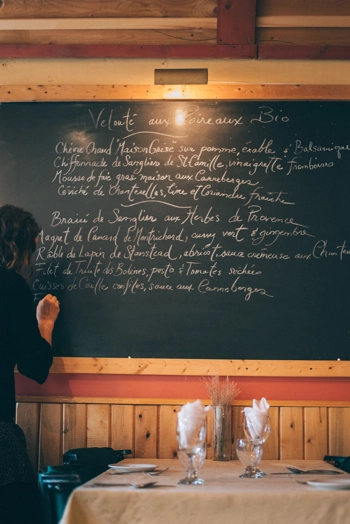 Velouté aux Poireaux Bio
Chèvre Chaud Maison Grisé sur pomme, érable & Balsamique
Chiffonnade de Sanglier de St-Camille, vinaigrette framboise
Mousse de foie gras maison aux Canneberges
Céviché de Chanterelles, Lime et Coriandre fraîche
Braisé de Sanglier aux Herbes de Provence
Magret de Canard de Montrichard, curry vert & gingembre
Râble de Lapin de Stanstead, abricot, sauce crémeuse aux
Filet de Truite des Bobines, pesto & Tomates séchées
Cuisses de Cailles confites, sauce aux Canneberges